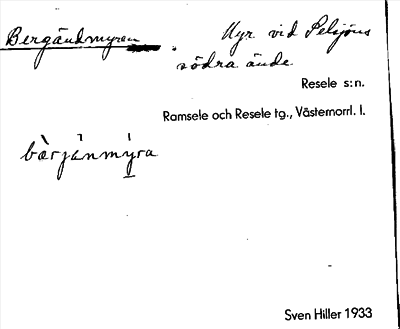 Bergändmyren. Myr vid Selsjöns
södra ände.
Resele s:n.
Ramsele och Resele tg., Västernorrl. l.
bærjänmyra
Sven Hiller 1933